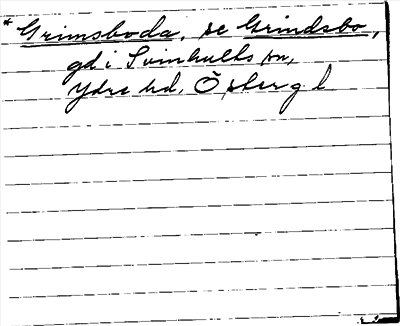 * Grimsboda, se Grindsbo,
gd i Svinhults sn,
Ydre hd, Ö, sberg l